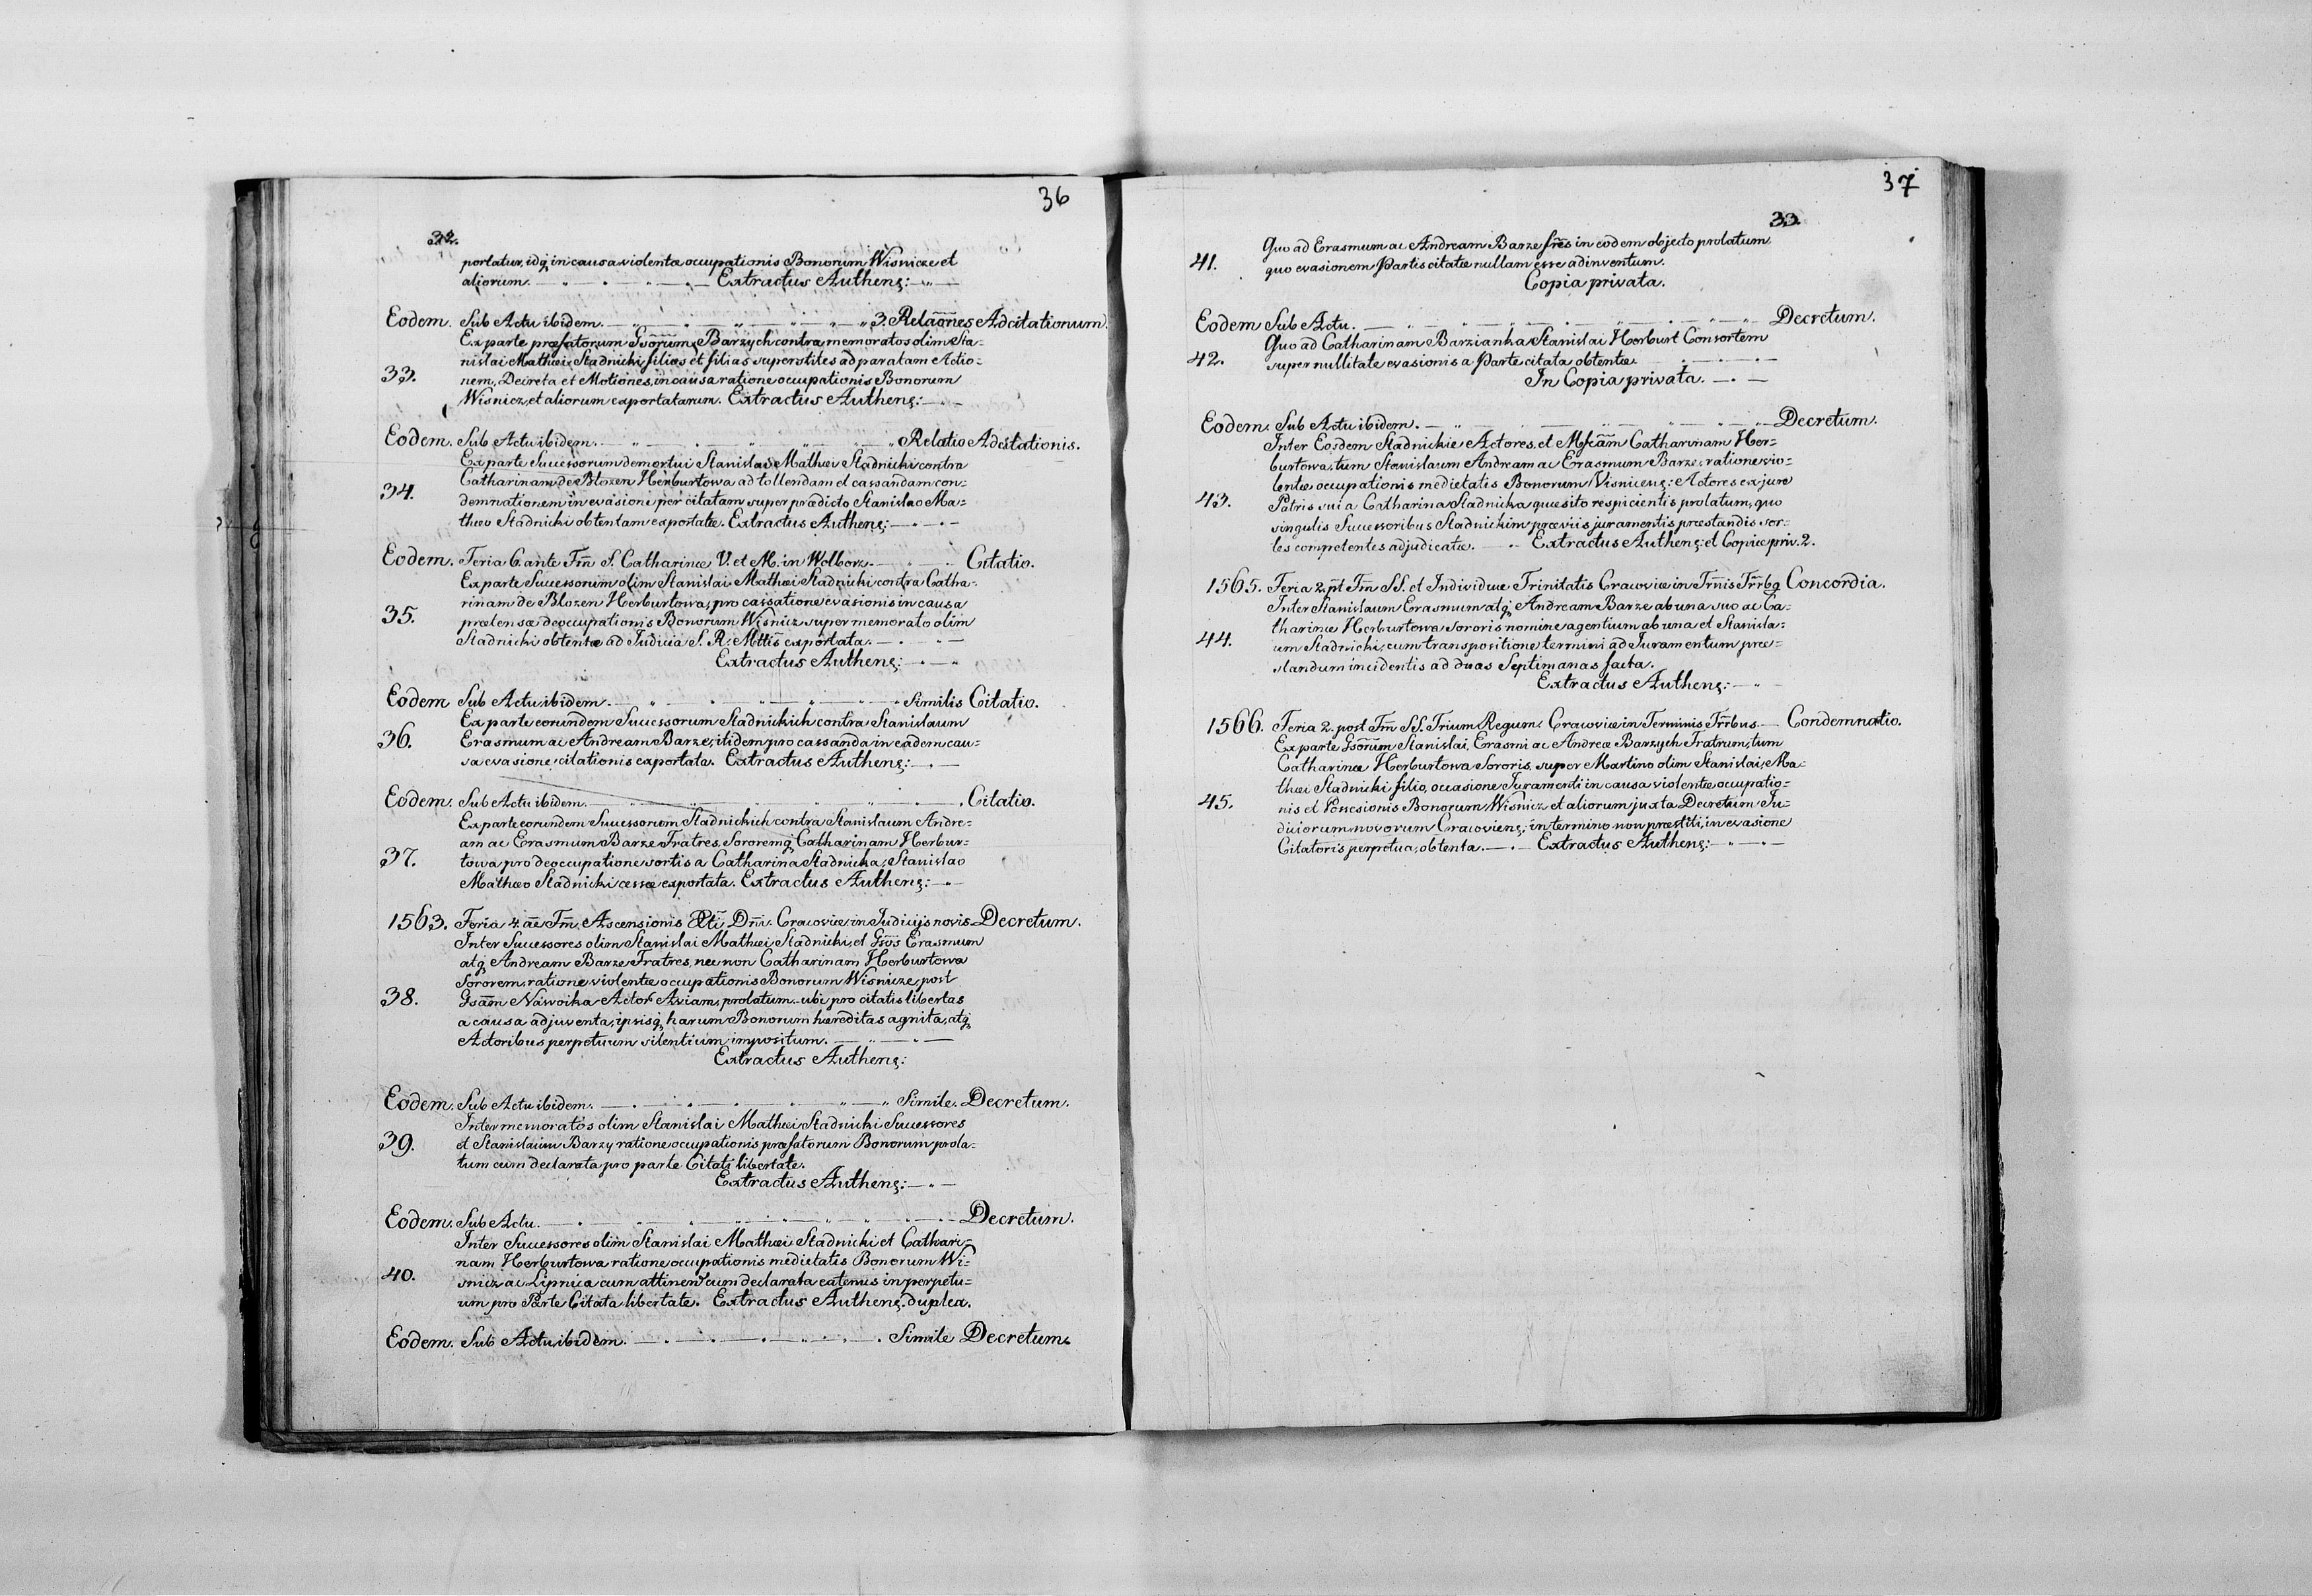 36
32.
portatur, idq in causa violentæ occupationis Bonorum Wisnicze et
aliorum. Extractus Authens:
Eodem. Sub Actu ibidem. 3 Relaõnes Adcitationum.
Ex parte præfatorum Gsorum Barzych contra memoratos olim Sta=
nislai Mathæi Stadnicki filios et filias superstites ad paratam Actio=
33. nem, Decreta et Motiones, in causa ratione occupationis Bonorum
Wisnicz, et aliorum exportatarum. Extractus Authens:
Eodem. Sub Actu ibidem. Relatio Adcitationis.
Ex parte Successorum demortui Stanislai Mathæi Stadnicki contra
Catharinam de Blozen Herburtowa ad tollendam et cassandam con=
34. demnationem in evasione per citatam super prædicto Stanislao Ma=
theo Stadnicki obtentam exportatæ. Extractus Authens:
Eodem. Feria 6. ante Fm̃ S. Catharinæ V. et M. in Wolborz. Citatio.
Ex parte Successorum olim Stanislai Mathæi Stadnicki contra Catha=
rinam de Blozen Herburtowa, pro cassatione evasionis in causa
35. prætensæ deoccupationis Bonorum Wisnicz super memorato olim
Stadnicki obtentæ ad Judicia S. R. Mttis exportata.
Extractus Authens:
Eodem Sub Actu ibidem. Similis Citatio.
Ex parte eorundem Successorum Stadnickich contra Stanislaum
36. Erasmum ac Andream Barze, itidem pro cassanda in eadem cau=
sa evasione citationis exportata. Extractus Authens:
Eodem. Sub Actu ibidem. Citatio.
Ex parte eorundem Successorum Stadnickich contra Stanislaum Andre=
am ac Erasmum Barze Fratres, Sororemq Catharinam Herbur=
37. towa pro deoccupatione sortis a Catharina Stadnicka, Stanislao
Mathæo Stadnicki cessæ exportata. Extractus Authens:
1563. Feria 4. ãe Fm̃ Ascensionis Xti Dñi Cracoviæ in Judicijs novis Decretum.
Inter Successores olim Stanislai Mathæi Stadnicki, et Gsos Erasmum
atq Andream Barze Fratres, nec non Catharinam Herburtowa
Sororem, ratione violentæ occupationis Bonorum Wisnicze, post
38. Gsam Nawoika Actor Aviam, prolatum, ubi pro citatis libertas
a causa adjuventa, ipsisq harum Bonorum hæreditas agnita, atq
Actoribus perpetuum silentium impositum.
Extractus Authens:
Eodem. Sub Actu ibidem. Simile. Decretum.
Inter memoratos olim Stanislai Mathæi Stadnicki Successores
39. et Stanislaum Barzy ratione occupationis præfatorum Bonorum prola=
tum cum declarata pro parte Citati libertate.
Extractus Authens:
Eodem. Sub Actu. Decretum.
Inter Successores olim Stanislai Mathæi Stadnicki et Cathari=
nam Herburtowa ratione occupationis medietatis Bonorum Wi=
40. snicz ac Lipnica cum attinen cum declarata eatenus in perpetu=
um pro Parte Citata libertate. Extractus Authens. duplex.
Eodem. Sub Actu ibidem. Simile Decretum.
37
33.
Quo ad Erasmum ac Andream Barze fres in eodem objecto prolatum,
41. quo evasionem Partis citatæ nullam esse adinventum.
Copia privata.
Eodem Sub Actu. Decretum.
Quo ad Catharinam Barzianka Stanislai Herburt Consortem
42. super nullitate evasionis a Parte citata obtentæ.
In Copia privata.
Eodem. Sub Actu ibidem. Decretum.
Inter Eosdem Stadnickie Actores, et Mfcam Catharinam Her=
burtowa, tum Stanislaum Andream ac Erasmum Barze, ratione vio=
lentæ occupationis medietatis Bonorum Visnicens: Actores ex jure
43. Patris sui a Catharina Stadnicka quæsito respicientis prolatum, quo
singulis Successoribus Stadnickim præviis juramentis præstandis sor=
tes competentes adjudicatæ. Extractus Authens: et Copiæ priv. 2.
1565. Feria 2. pt Fm̃ SS. et Individuæ Trinitatis Cracoviæ in Trñis Trrbq Concordia.
Inter Stanislaum Erasmum atq Andream Barze ab una suo ac Ca=
tharinæ Herburtowa Sororis nomine agentium ab una et Stanisla=
44. um Stadnicki, cum transpositione termini ad Juramentum præ=
standum incidentis ad duas Septimanas facta.
Extractus Authens:
1566. Feria 2. post Fm̃ SS. Trium Regum Cracoviæ in Terminis Trribus. Condemnatio.
Ex parte Gsorum Stanislai, Erasmi ac Andreæ Barzych Fratrum, tum
Catharinæ Herburtowa Sororis, super Martino olim Stanislai Ma=
thæi Stadnicki filio, occasione Juramenti in causa violentæ occupatio=
45. nis et Possesionis Bonorum Wisnicz et aliorum juxta Decretum Ju=
diciorum novorum Cracoviens: in termino non præstiti, in evasione
Citatoris perpetua, obtenta. Extractus Authens: